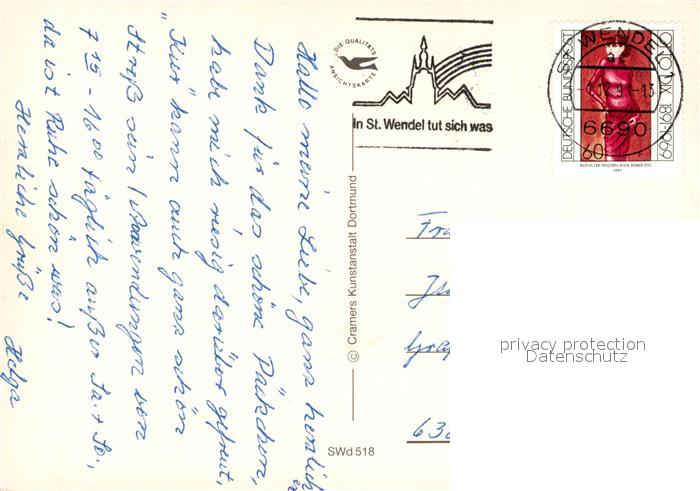 Hallo meine Liebe, ganz herzlich
Dank für das schöne Päckchen,
habe mich riesig darüber gefreut,
"Kur" kann auch ganz schön
Streß sein! Anwendungen von
7 15 - 16 00 täglich außer Sa. + So.,
da ist Ruhe schön was!
Herzliche Grüße
Helga
DIE QUALITÄTS
ANSICHTSKARTE
In St. Wendel tut sich was
ST. WENDEL 1
12.91-13
6690
DEUTSCHE BUNDESPOST
OTTO DIX 1891-1969
60
BILDNIS DER TÄNZERIN ANITA BERBER 1925
1991
© Cramers Kunstanstalt Dortmund
SWd 518
privacy protection
Datenschutz